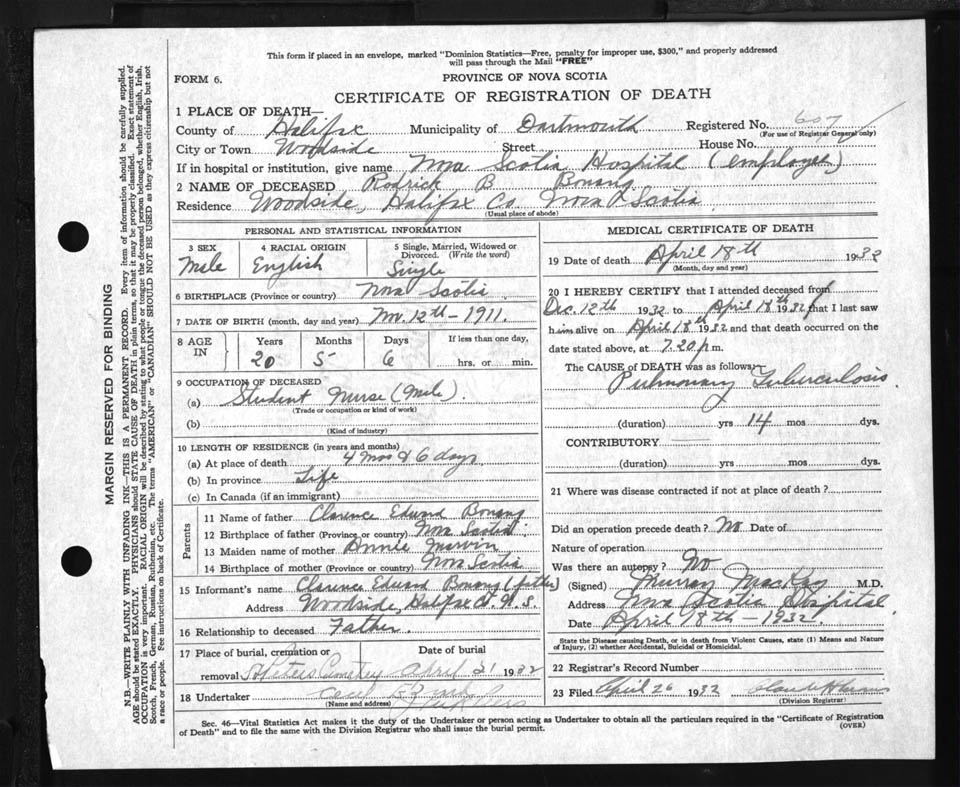 This form if placed in an envelope, marked "Dominion Statistics—Free, penalty for improper use, $300," and properly addressed
will pass through the Mail "FREE"
FORM 6.
PROVINCE OF NOVA SCOTIA
CERTIFICATE OF REGISTRATION OF DEATH
MARGIN RESERVED FOR BINDING
N.B.—WRITE PLAINLY WITH UNFADING INK—THIS IS A PERMANENT RECORD. Every item of information should be carefully supplied.
AGE should be stated EXACTLY. PHYSICIANS should STATE CAUSE OF DEATH in plain terms, so that it may be properly classified. Exact statement of
OCCUPATION is very important. RACIAL ORIGIN will be described by stating to what people or tongue the deceased person belonged, whether English, Irish,
Scotch, French, German, Russian, Ruthenian, etc. The terms "AMERICAN" or "CANADIAN" SHOULD NOT BE USED as they express citizenship but not
a race or people. Fee instructions on back of Certificate.
1 PLACE OF DEATH—
County of Halifax Municipality of Dartmouth Registered No. 607
(For use of Registrar General only)
City or Town Woodside Street House No.
If in hospital or institution, give name Nova Scotia Hospital (employee)
2 NAME OF DECEASED Rodrick B Bonang
Residence Woodside, Halifax Co. Nova Scotia
(Usual place of abode)
PERSONAL AND STATISTICAL INFORMATION
3 SEX 4 RACIAL ORIGIN 5 Single, Married, Widowed or
Divorced. (Write the word)
Male English Single
6 BIRTHPLACE (Province or country) Nova Scotia
7 DATE OF BIRTH (month, day and year) Nov. 12th - 1911.
8 AGE IN Years Months Days If less than one day,
20 5 6 hrs. or min.
9 OCCUPATION OF DECEASED
(a) Student Nurse (Male).
(Trade or occupation or kind of work)
(b)
(Kind of industry)
10 LENGTH OF RESIDENCE (in years and months)
(a) At place of death 4 mos & 6 days
(b) In province Life
(c) In Canada (if an immigrant)
Parents
11 Name of father Clarence Edward Bonang
12 Birthplace of father (Province or country) Nova Scotia
13 Maiden name of mother Annie Marvin
14 Birthplace of mother (Province or country) Nova Scotia
15 Informant's name Clarence Edward Bonang (father)
Address Woodside, Halifax Co. N.S.
16 Relationship to deceased Father.
17 Place of burial, cremation or Date of burial
removal St Peters Cemetery April 21 1932
18 Undertaker
(Name and address)
MEDICAL CERTIFICATE OF DEATH
19 Date of death April 18th 1932
(Month, day and year)
20 I HEREBY CERTIFY that I attended deceased from
Dec. 12th 1932 to April 18th 1932, that I last saw
him alive on April 18th 1932 and that death occurred on
date stated above, at 7.20 p m.
The CAUSE of DEATH was as follows:—
Pulmonary Tuberculosis
(duration) yrs 14 mos dys.
CONTRIBUTORY
(duration) yrs mos dys.
21 Where was disease contracted if not at place of death?
Did an operation precede death? No Date of
Nature of operation
Was there an autopsy? No
(Signed) Murray MacKay M.D.
Address Nova Scotia Hospital
Date April 18th - 1932.
State the Disease causing Death, or in death from Violent Causes, state (1) Means and Nature
of Injury, (2) whether Accidental, Suicidal or Homicidal.
22 Registrar's Record Number
23 Filed April 26 1932
(Division Registrar)
Sec. 46—Vital Statistics Act makes it the duty of the Undertaker or person acting as Undertaker to obtain all the particulars required in the "Certificate of Registration
of Death" and to file the same with the Division Registrar who shall issue the burial permit.
(OVER)